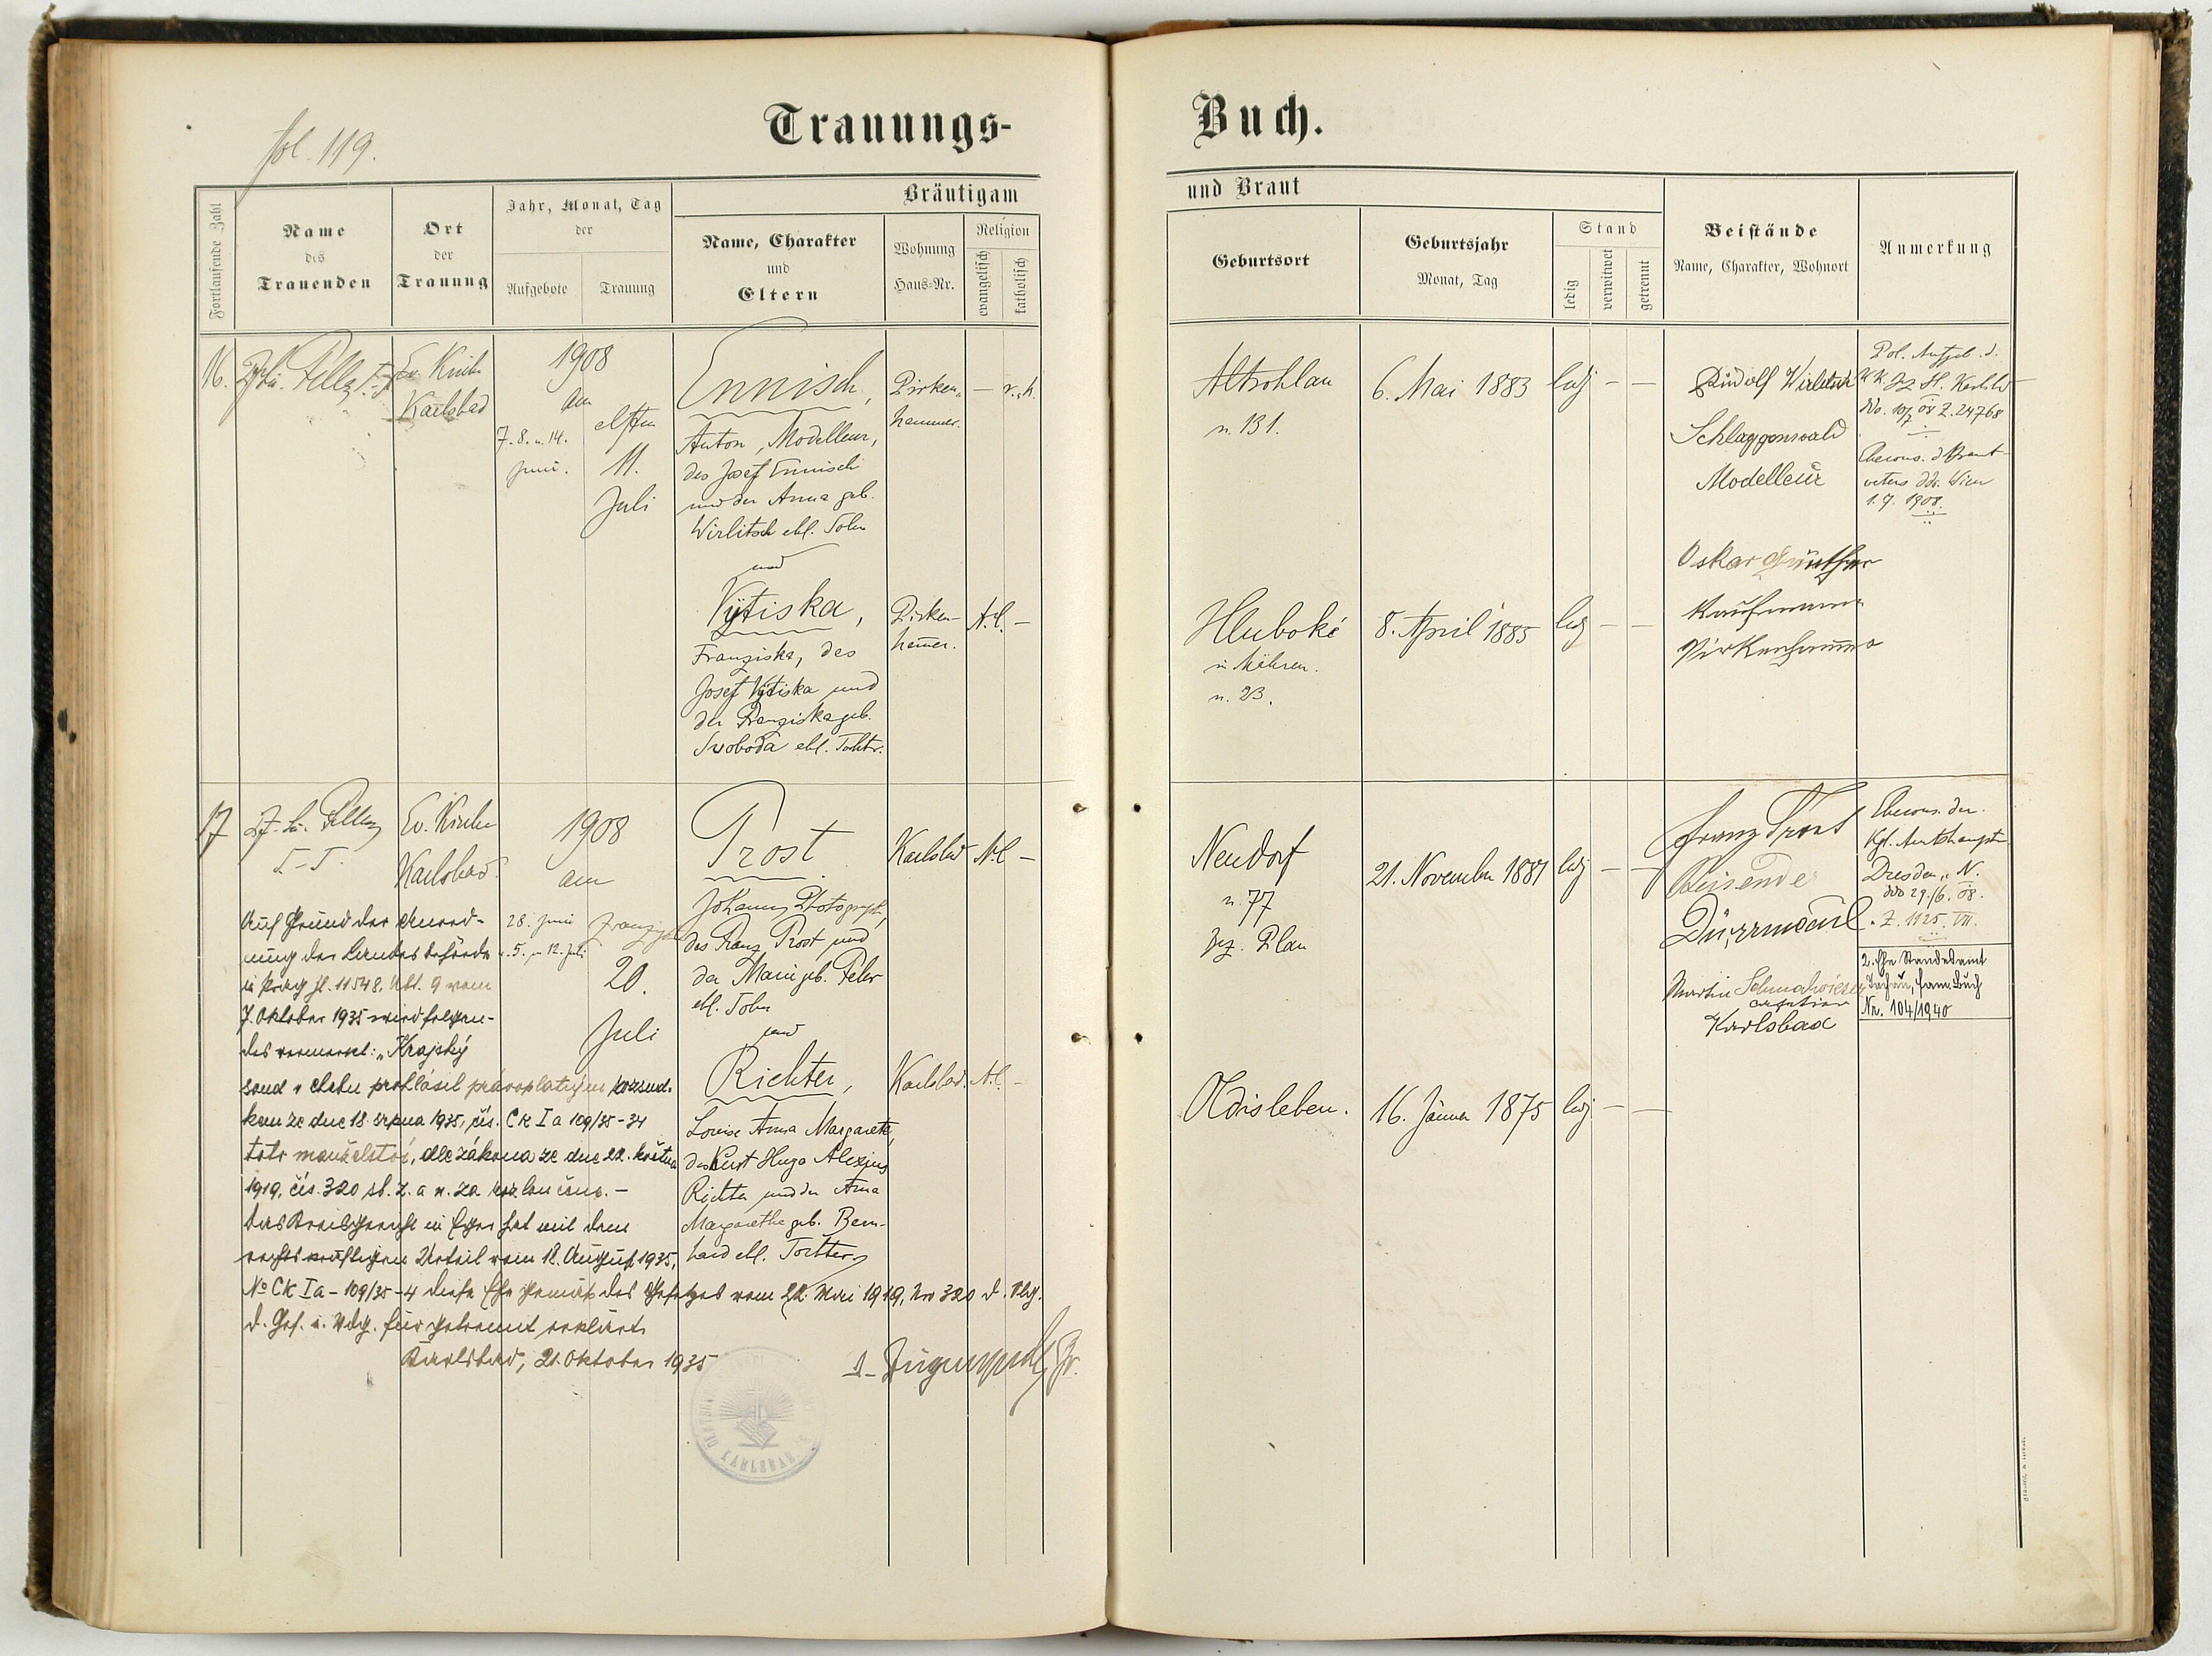 fol. 119.
Trauungs-
Buch.
Fortlaufende Zahl
Name
des
Trauenden
Ort
der
Trauung
Jahr, Monat, Tag
der
Aufgebote
Trauung
Bräutigam
Name, Charakter
und
Eltern
Wohnung
Haus-Nr.
Religion
evangelisch
katholisch
und Braut
Geburtsort
Geburtsjahr
Monat, Tag
Stand
ledig
verwitwet
getrennt
Beistände
Name, Charakter, Wohnort
Anmerkung
16.
Ev. Kirche
Karlsbad
1908
am
7. 8. u. 14.
Juni.
elften
11.
Juli
Ennisch,
Anton, Modelleur,
des Josef Ennisch
und der Anna geb.
Wirlitsch ehl. Sohn
und
Vytiska,
Franziska, des
Josef Vytiska und
der Franziska geb.
Svoboda ehl. Tochtr.
Pirken-
hammer.
— r. k.
Pirken-
hamer.
A. C. —
Altrohlau
n. 131.
6. Mai 1883
ledj — —
Hluboké
in Mähren.
n. 23.
8. April 1885
ledj — —
Rudolf Wirlitsch
Schlaggenwald
Modelleur
Oskar Günther
Kaufmann
Pirkenhammer
Pol. Aufgeb. d.
K. K. Bz. H. Karlsbd
ddo. 10/7 08 Z. 24768
Ehecons. d Braut-
vaters ddo. Wien
1. 7. 1908.
17
Ev. Kirche
Karlsbad.
1908
am
28. Juni
5. u. 12. Juli
zwanzigs
20.
Juli
Trost
Johann, Photograph,
des Franz Trost und
der Marie geb. Feler
ehl. Sohn
und
Richter,
Louise Anna Margarete,
des Kurt Hugo Alexius
Richter und der Anna
Margarethe geb. Bern-
hard ehl. Tochter
Karlsbad A. C. —
Karlsbad. A. C. —
Neudorf
n. 77
Bez. Plan
21. November 1881
ledj — —
Oldisleben.
16. Jänner 1875
ledj. — —
Franz Trost
Reisender
Dürrmaul
Martin
Karlsbad
Ehecons. der
Kgl. Amtshauptm.
Dresden, N.
ddo 29./6. 08.
Z. 1125. VII.
2. Ehe Standesamt
Tachau, Fam. Buch
Nr. 104/1940
Auf Grund der Anord-
nung der Landesbehörde
in Prag Zl. 11548, Abt. 9 vom
7. Oktober 1935 wird folgen-
des vermerkt: „Krajský
soud v Chebu prohlásil právoplatným rozsud-
kem ze dne 18. srpna 1935, čís. Ck I a 109/35-34
toto manželství, dle zákona ze dne 22. května
1919, čís. 320 sb. z. a n. za rozloučeno. —
Das Kreisgericht in Eger hat mit dem
rechtskräftigen Urteil vom 18. August 1935,
No Ck Ia - 109/35 - 4 diese Ehe gemäß des Gesetzes vom 22. Mai 1919, No 320 d. Slg.
d. Ges. u. Vdg. für getrennt erklärt.
Karlsbad, 21. Oktober 1935
KARLSBAD